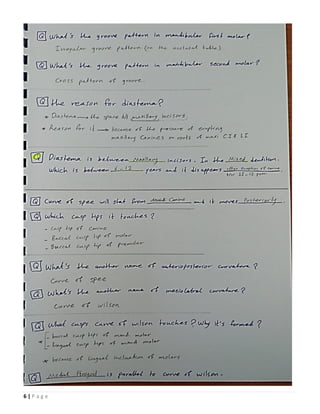 Q What's the groove pattern in mandibular first molar?
Irregular groove pattern (on the occlusal table)
Q What's the groove pattern in mandibular second molar?
Cross pattern of groove.
Q The reason for diastema?
* Diastema → the space b/w maxillary incisors.
* Reason for it → because of the pressure of erupting
maxillary Canines on roots of max CI & LI
Q Diastema is between Maxillary incisors. In the Mixed dentition.
Which is between years and it disappears after eruption of canine
Q Curve of spee will start from Canine and it moves Posteriorly.
Q Which cusp tips it touches?
- Cusp tip of canine
- Buccal cusp tip of molar
- Buccal cusp tip of premolar
Q What's the another name of anteroposterior curvature?
Curve of spee
Q What's the another name of mesiolateral curvature?
Curve of wilson
Q What cusps curve of wilson touches? Why it's formed?
- buccal cusp tips of mand. molar
- lingual cusp tips of mand. molar
* because of lingual inclination of molars
Q is parallel to curve of wilson.
6 | Page